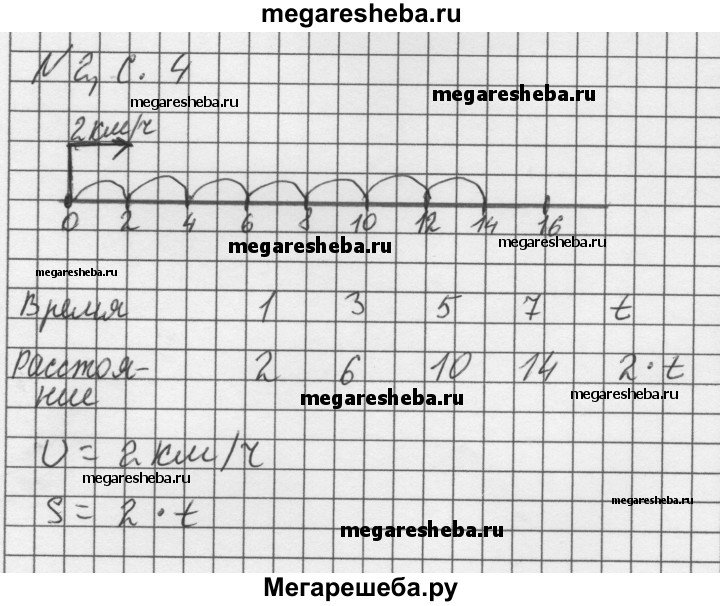 megaresheba.ru
N 2, с. 4
megaresheba.ru
megaresheba.ru
2 км/ч
0 2 4 6 8 10 12 14 16
megaresheba.ru
megaresheba.ru
megaresheba.ru
Время 1 3 5 7 t
Расстоя- 2 6 10 14 2 · t
ние
megaresheba.ru
megaresheba.ru
υ = 2 км/ч
megaresheba.ru
megaresheba.ru
s = 2 · t
megaresheba.ru
Мегарешеба.ру